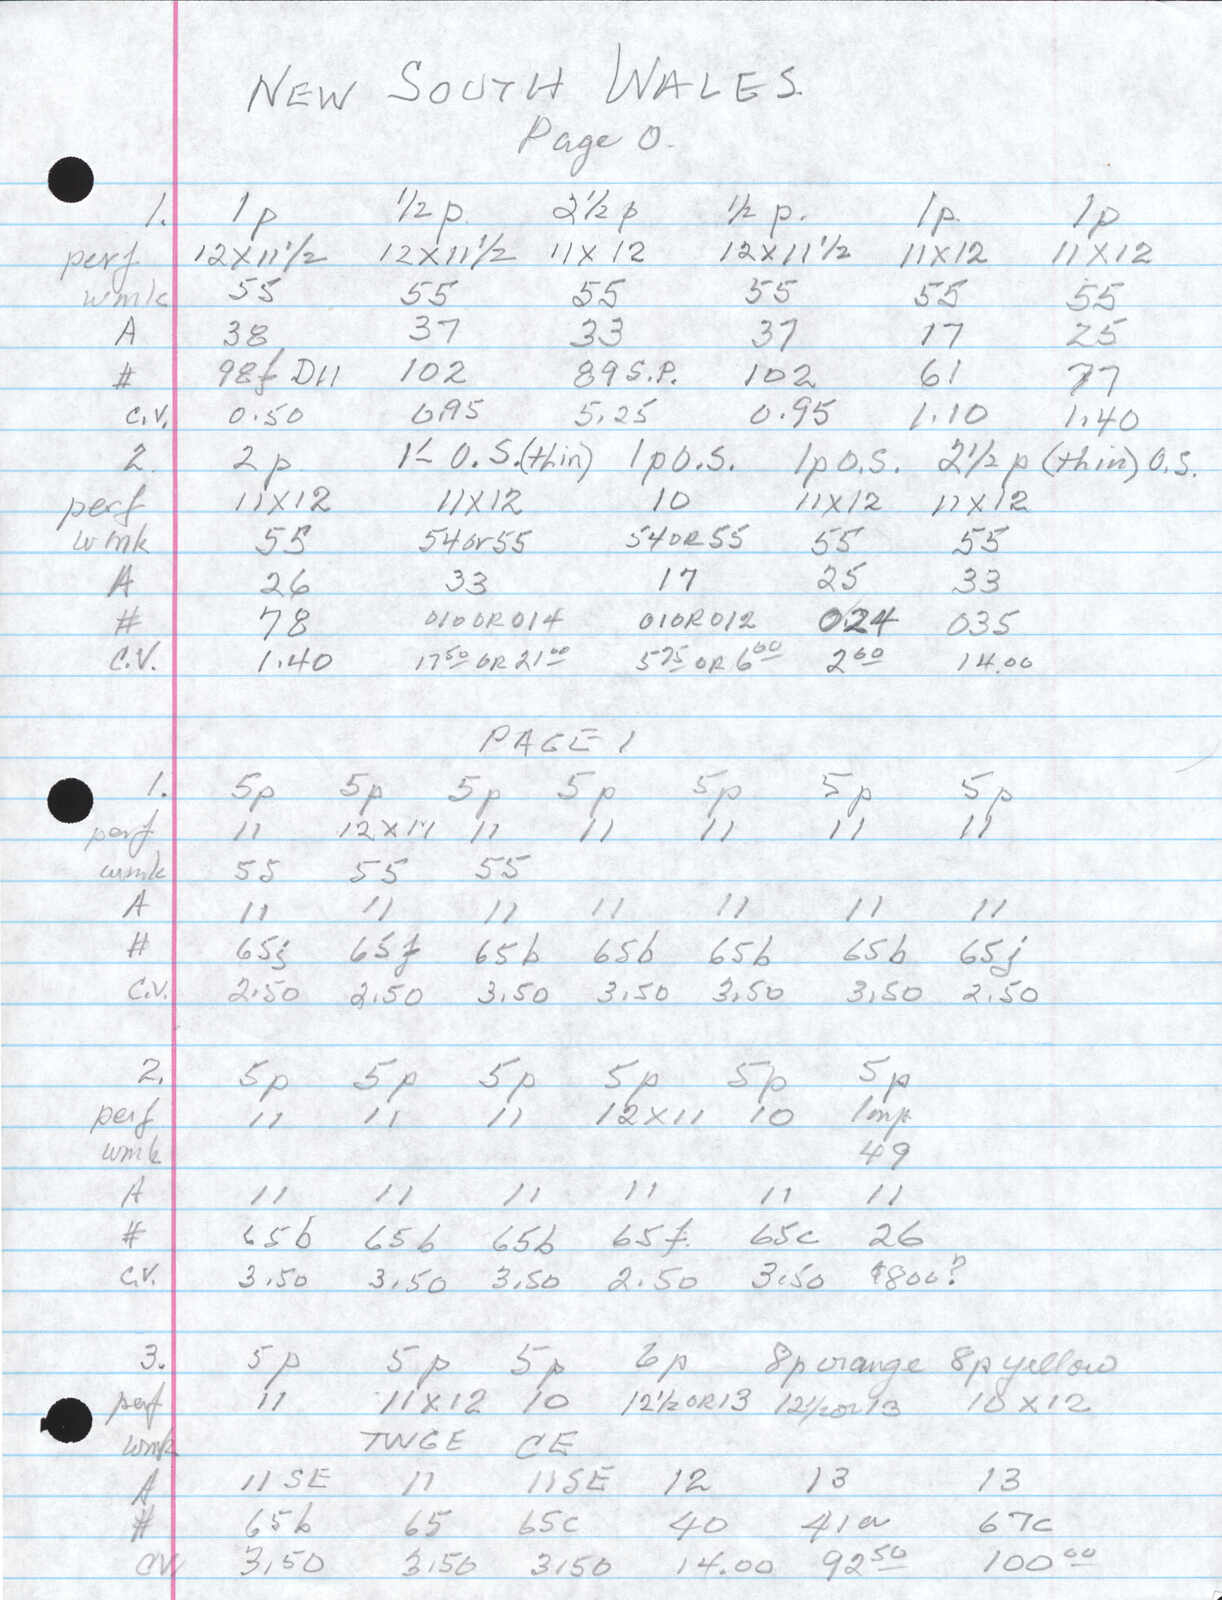 NEW SOUTH WALES
Page 0.
1. 1p 1/2 p. 2 1/2 p 1/2 p. 1p. 1p
perf 12X11 1/2 12X11 1/2 11X12 12X11 1/2 11X12 11X12
wmk 55 55 55 55 55 55
A 38 37 33 37 17 25
# 98f D11 102 89 S.P. 102 61 77
C.V. 0.50 0.95 5.25 0.95 1.10 1.40
2. 2p O.S.(thin) 1p O.S. 1p O.S. 2 1/2 p (thin) O.S.
perf 11X12 11X12 10 11X12 11X12
wmk 55 54 or 55 54 OR 55 55 55
A 26 33 17 25 33
# 78 010 OR 014 010R012 024 035
C.V. 1.40 17 50 OR 21 00 5 75 OR 6 00 2 00 14.00
PAGE 1
1. 5p 5p 5p 5p 5p 5p 5p
perf 11 12X11 11 11 11 11 11
wmk 55 55 55
A 11 11 11 11 11 11 11
# 65j 65f 65b 65b 65b 65b 65j
C.V. 2.50 2.50 3.50 3.50 3.50 3.50 2.50
2. 5p 5p 5p 5p 5p 5p
perf 11 11 11 12X11 10 Imp
wmk 49
A 11 11 11 11 11 11
# 65b 65b 65b 65f. 65c 26
C.V. 3.50 3.50 3.50 2.50 3.50 $800?
3. 5p 5p 5p 6p 8p orange 8p yellow
perf 11 11X12 10 12 1/2 OR 13 12 1/2 OR 13 10X12
wmk TWGE CE
A 11 SE 11 11SE 12 13 13
# 65b 65 65c 40 41a 67c
C.V. 3.50 3.50 3.50 14.00 92 50 100 00